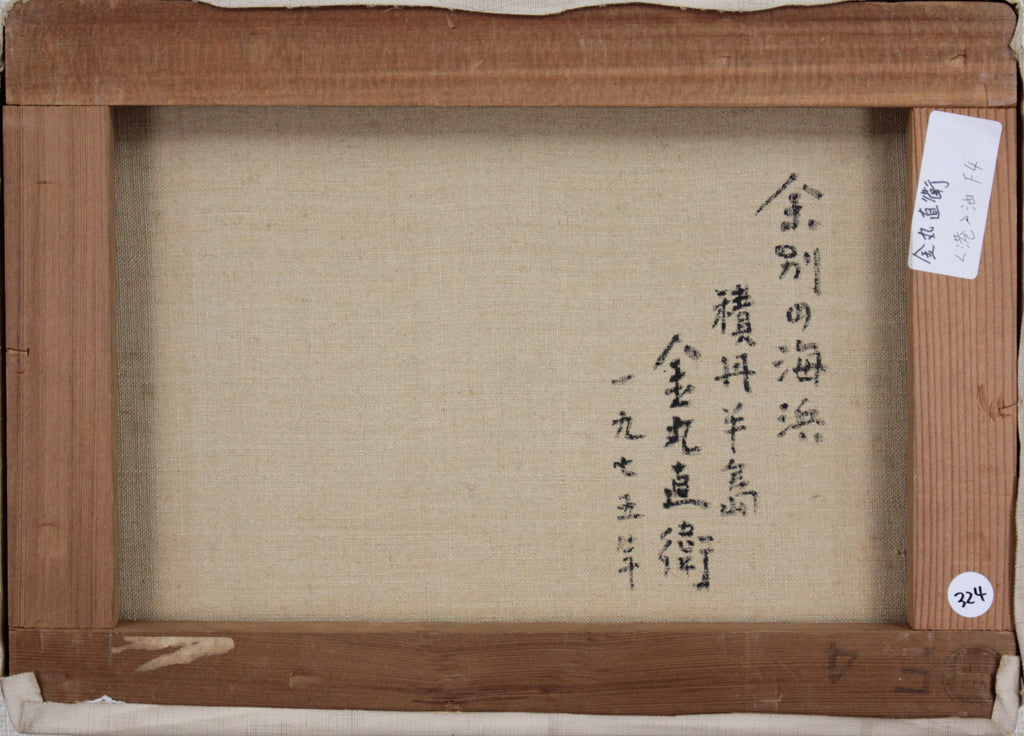 余別の海浜
積丹半島
金丸直衛
一九七五年
金丸直衛
く港〉油 F4
324
F
4